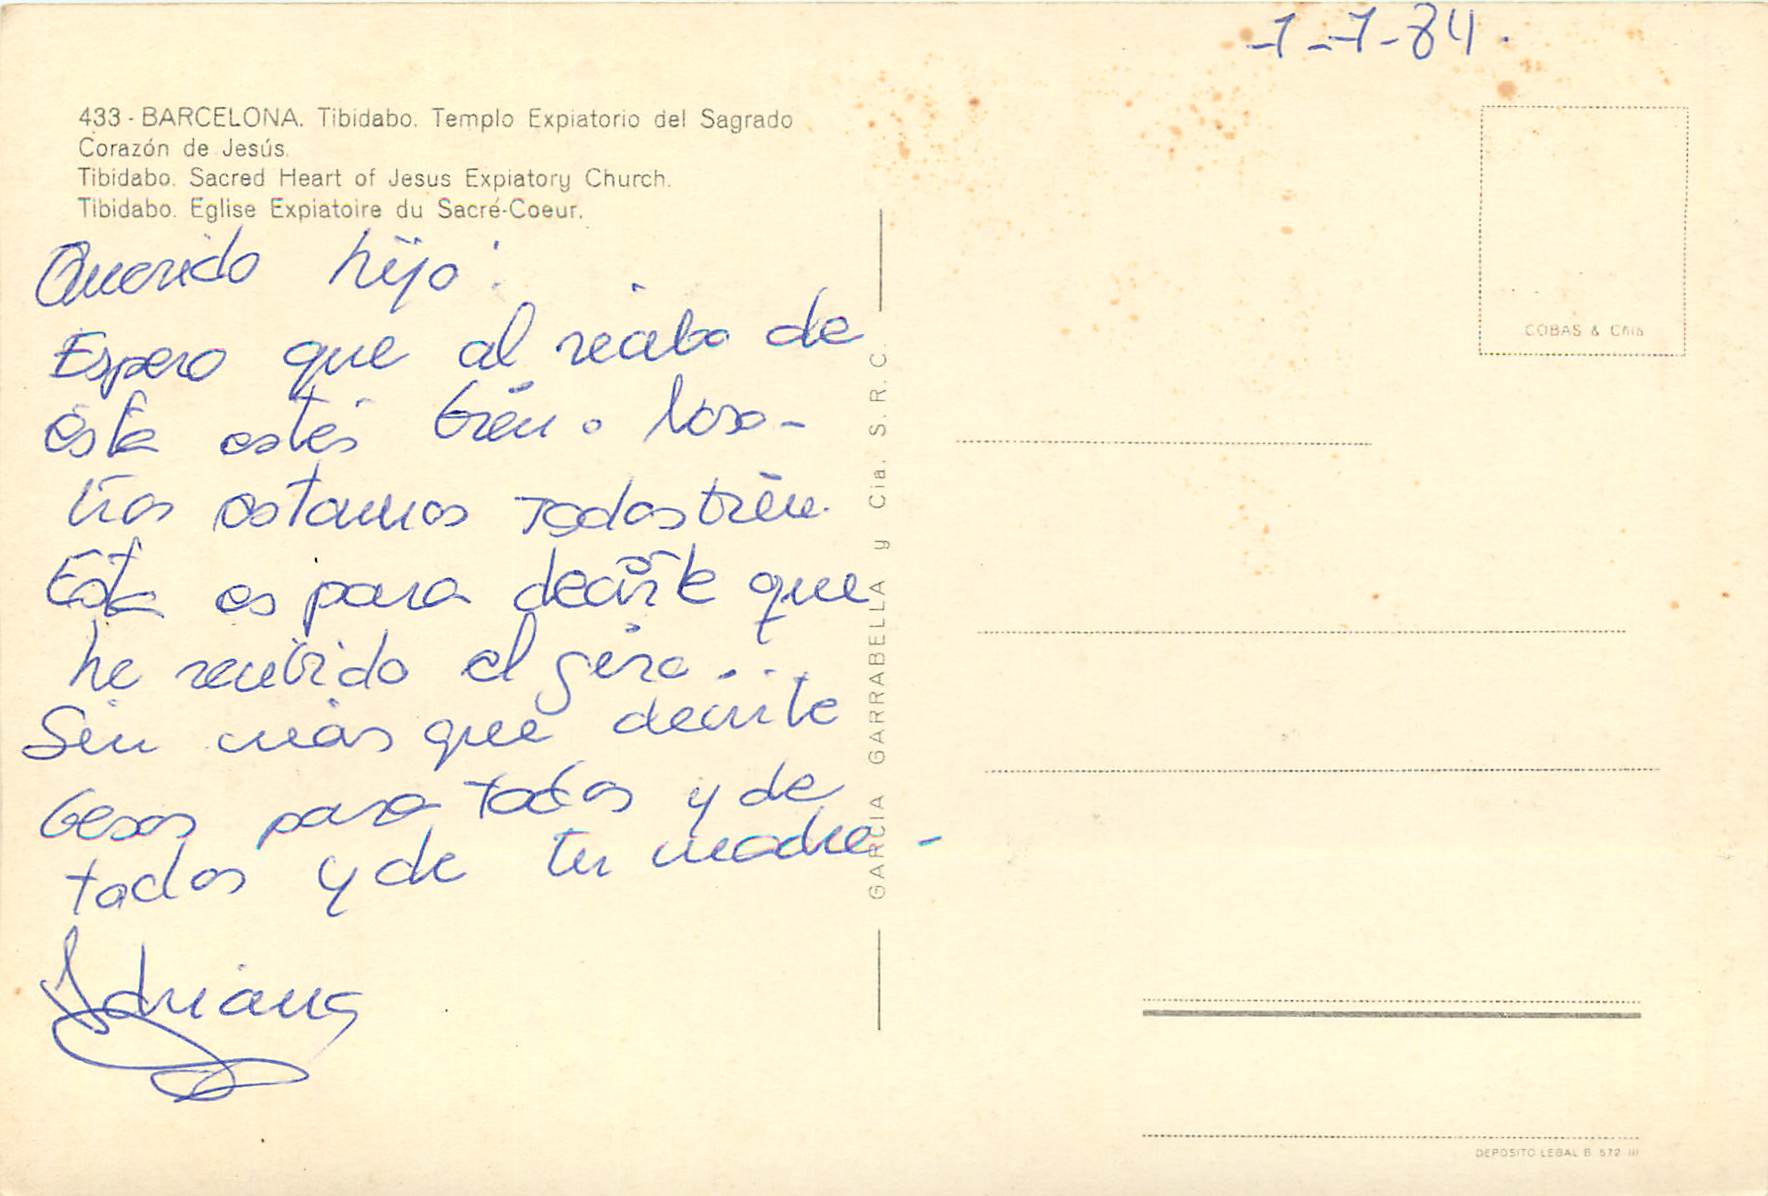 -7-7-84.
433 - BARCELONA. Tibidabo. Templo Expiatorio del Sagrado
Corazón de Jesús.
Tibidabo. Sacred Heart of Jesus Expiatory Church.
Tibidabo. Eglise Expiatoire du Sacré-Coeur.
Querido hijo:
Espero que al recibo de
ésta estés bién. Noso-
tros estamos todos bién.
Esta es para decirte que
he recibido el giro...
Sin más que decirte
besos para todos y de
todos y de tu madre -
Adriana
GARCIA GARRABELLA y Cia. S.R.C.
COBAS & Chia
DEPOSITO LEGAL B. 572 III